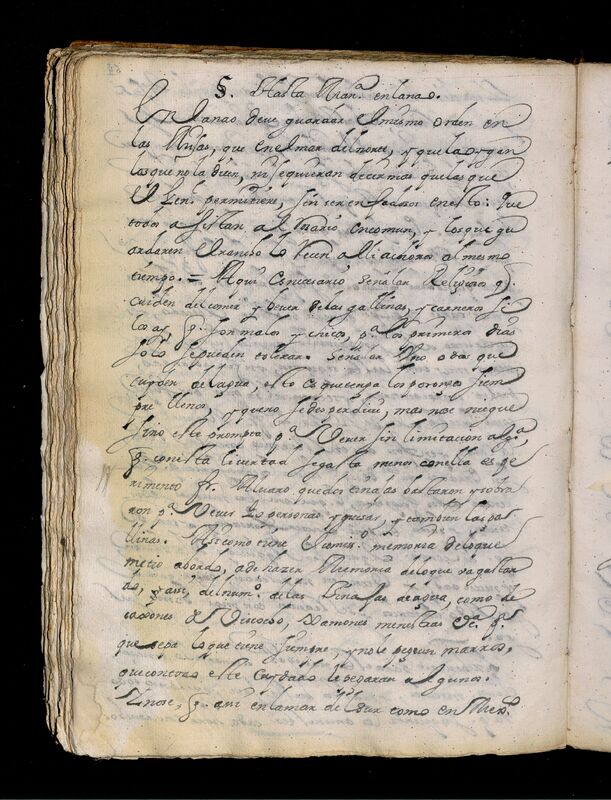 §. Hasta Man.ª en la nao.
En la nao deve guardar el mismo orden en
las Misas, que en el mar del norte, y que la oygan
los que no la dicen, ni se quieran decir mas que las que
el permitiere, sin ser enfadosos en esto: Que
todos asistan al Rosario en comun, y los que gu
ardaren el rancho lo recen alli a solas al mesmo
tiempo. = Aqui es necesario señalar Religiosos q
cuiden del comer y bever de las gallinas, y carneros si
los ay, q. son malos y chicos, p.ª los primeros dias
solo se pueden tolerar. Señalar Uno o dos que
cuyden del agua, esto es que tenga los porones siem
pre llenos, y que no se desperdicie, mas no se niegue
sino este prompta p.ª Vever sin limitacion alg.ª,
q. con esta livertad se gasta menos con ella es pe
rimento fr. Alvaro que dos tinajas bastaron y sobra
ron p.ª Vever personas y guisar, y tambien las ga
llinas. Asi como tiene el comis.º memoria de lo que
metio abordo, a de hazer Memoria de lo que va gastan
do, y assi, del num.º de las tinajas de agua, como de
caxones de Viscocho, Jamones menestras
que sepa lo que tiene siempre, y no le peguen
que con todo este cuydado le pegaran algunos.
Y note, q. assi en la mar del Sur como en